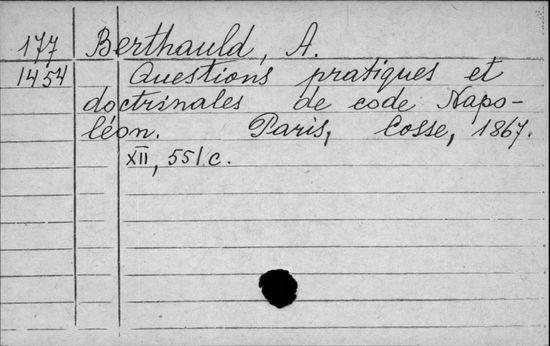 177 Berthauld, A.
1454 Questions pratiques et
doctrinales de code Napo-
léon. Paris, Cosse, 1867.
XII, 551 c.